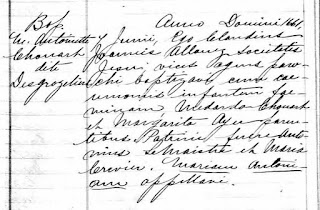 Bap.
M. Antoinette
Chouart
dite
Desgrozeliers
Anno Domini 1661,
7 Junii, Ego Claudius
Joannes Allouez Societatis
Jesu, vices agens paro
chi baptizavi cum cae
remoniis infantem fae
minam Medardo Chouart
et Margarita Ayet paren
tibus. Patrini fuere
le Maistre et Maria
Crevier. Mariam Antoni
am appellavi.